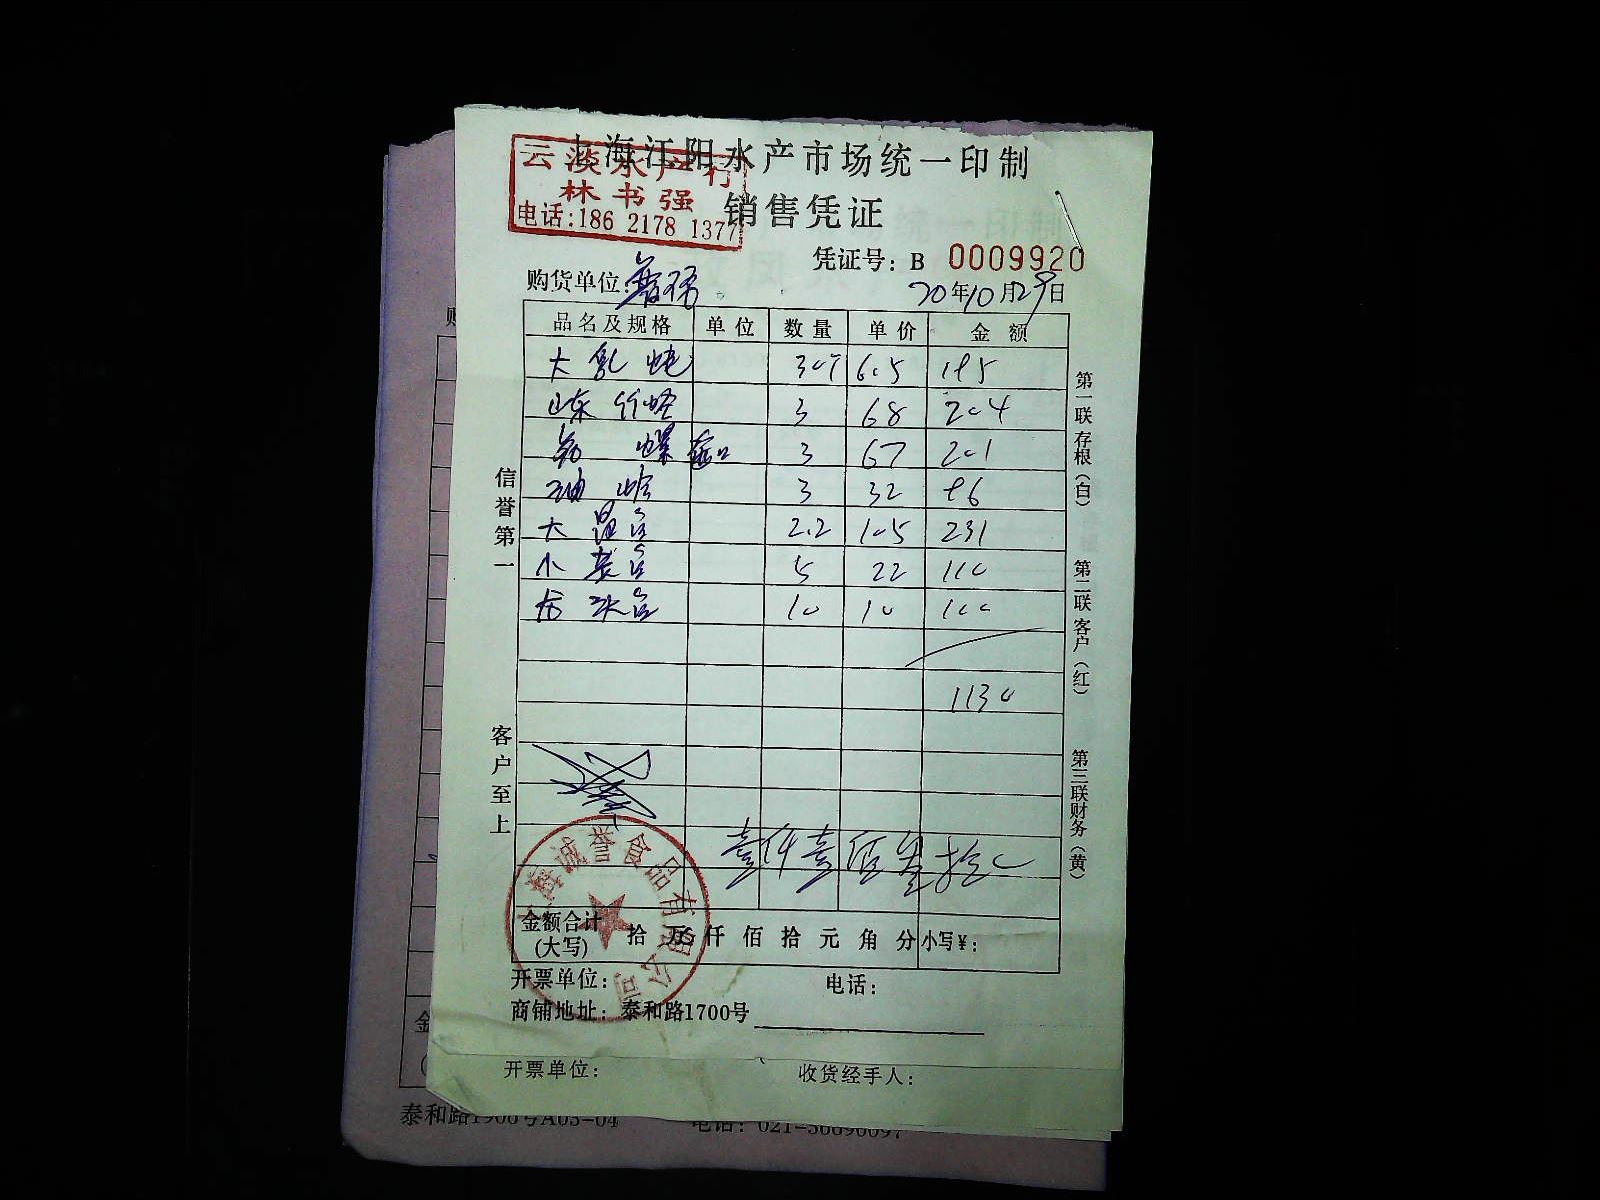 上海江阳水产市场统一印制
云淡水产行
林书强
电话:186 2178 1377
销售凭证
凭证号: B 0009920
购货单位:
20年10月29日
品名及规格 单位 数量 单价 金额
大 6.5 195
山东竹蛏 3 68 204
螺 3 67 201
油蛤 3 32 96
大 2.2 105 231
小 5 22 110
10 10 100
1130
壹仟壹佰叁拾
金额合计 拾 万 仟 佰 拾 元 角 分 小写¥:
(大写)
开票单位: 电话:
商铺地址: 泰和路1700号
信誉第一
客户至上
第一联 存根(白)
第二联 客户(红)
第三联 财务(黄)
诚誉食品有限公司
开票单位: 收货经手人:
金
泰和路
电话: 021-